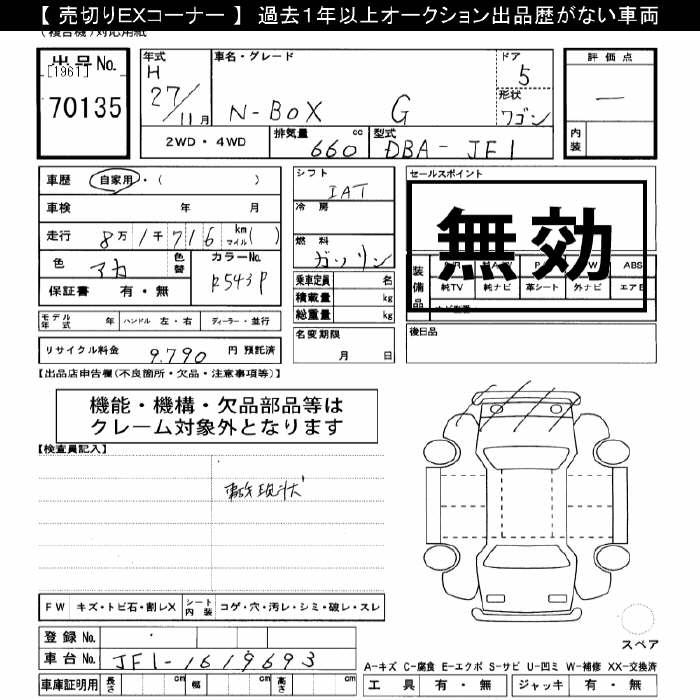 【 売切りEXコーナー 】 過去1年以上オークション出品歴がない車両
(複合機)対応用紙
出品No.
[1961]
70135
年式
H
27/11月
車名・グレード
N-BOX G
ドア
5
形状
ワゴン
評価点
—
内装
2WD・4WD
排気量
660 cc
型式
DBA-JF1
車歴 自家用・( )
車検 年 月
走行 8万1千716 km マイル( )
色 アカ
色替
カラーNo.
R543P
保証書 有・無
シフト
IAT
冷房
燃料
ガソリン
乗車定員 名
積載量 kg
総重量 kg
セールスポイント
無効
装備品
ABS
純TV 純ナビ 革シート 外ナビ エアB
モデル年式 年 ハンドル 左・右 ディーラー・並行
名変期限
月 日
後日品
リサイクル料金 9,790 円 預託済
【出品店申告欄(不良箇所・欠品・注意事項等)】
機能・機構・欠品部品等は
クレーム対象外となります
【検査員記入】
事故現状
FW キズ・トビ石・割レX シート内装 コゲ・穴・汚レ・シミ・破レ・スレ
登録No.
車台No. JF1-1619693
車庫証明用 長さ cm 幅 cm 高さ cm
スペア
A-キズ C-腐食 E-エクボ S-サビ U-凹ミ W-補修 XX-交換済
工具 有・無 ジャッキ 有・無